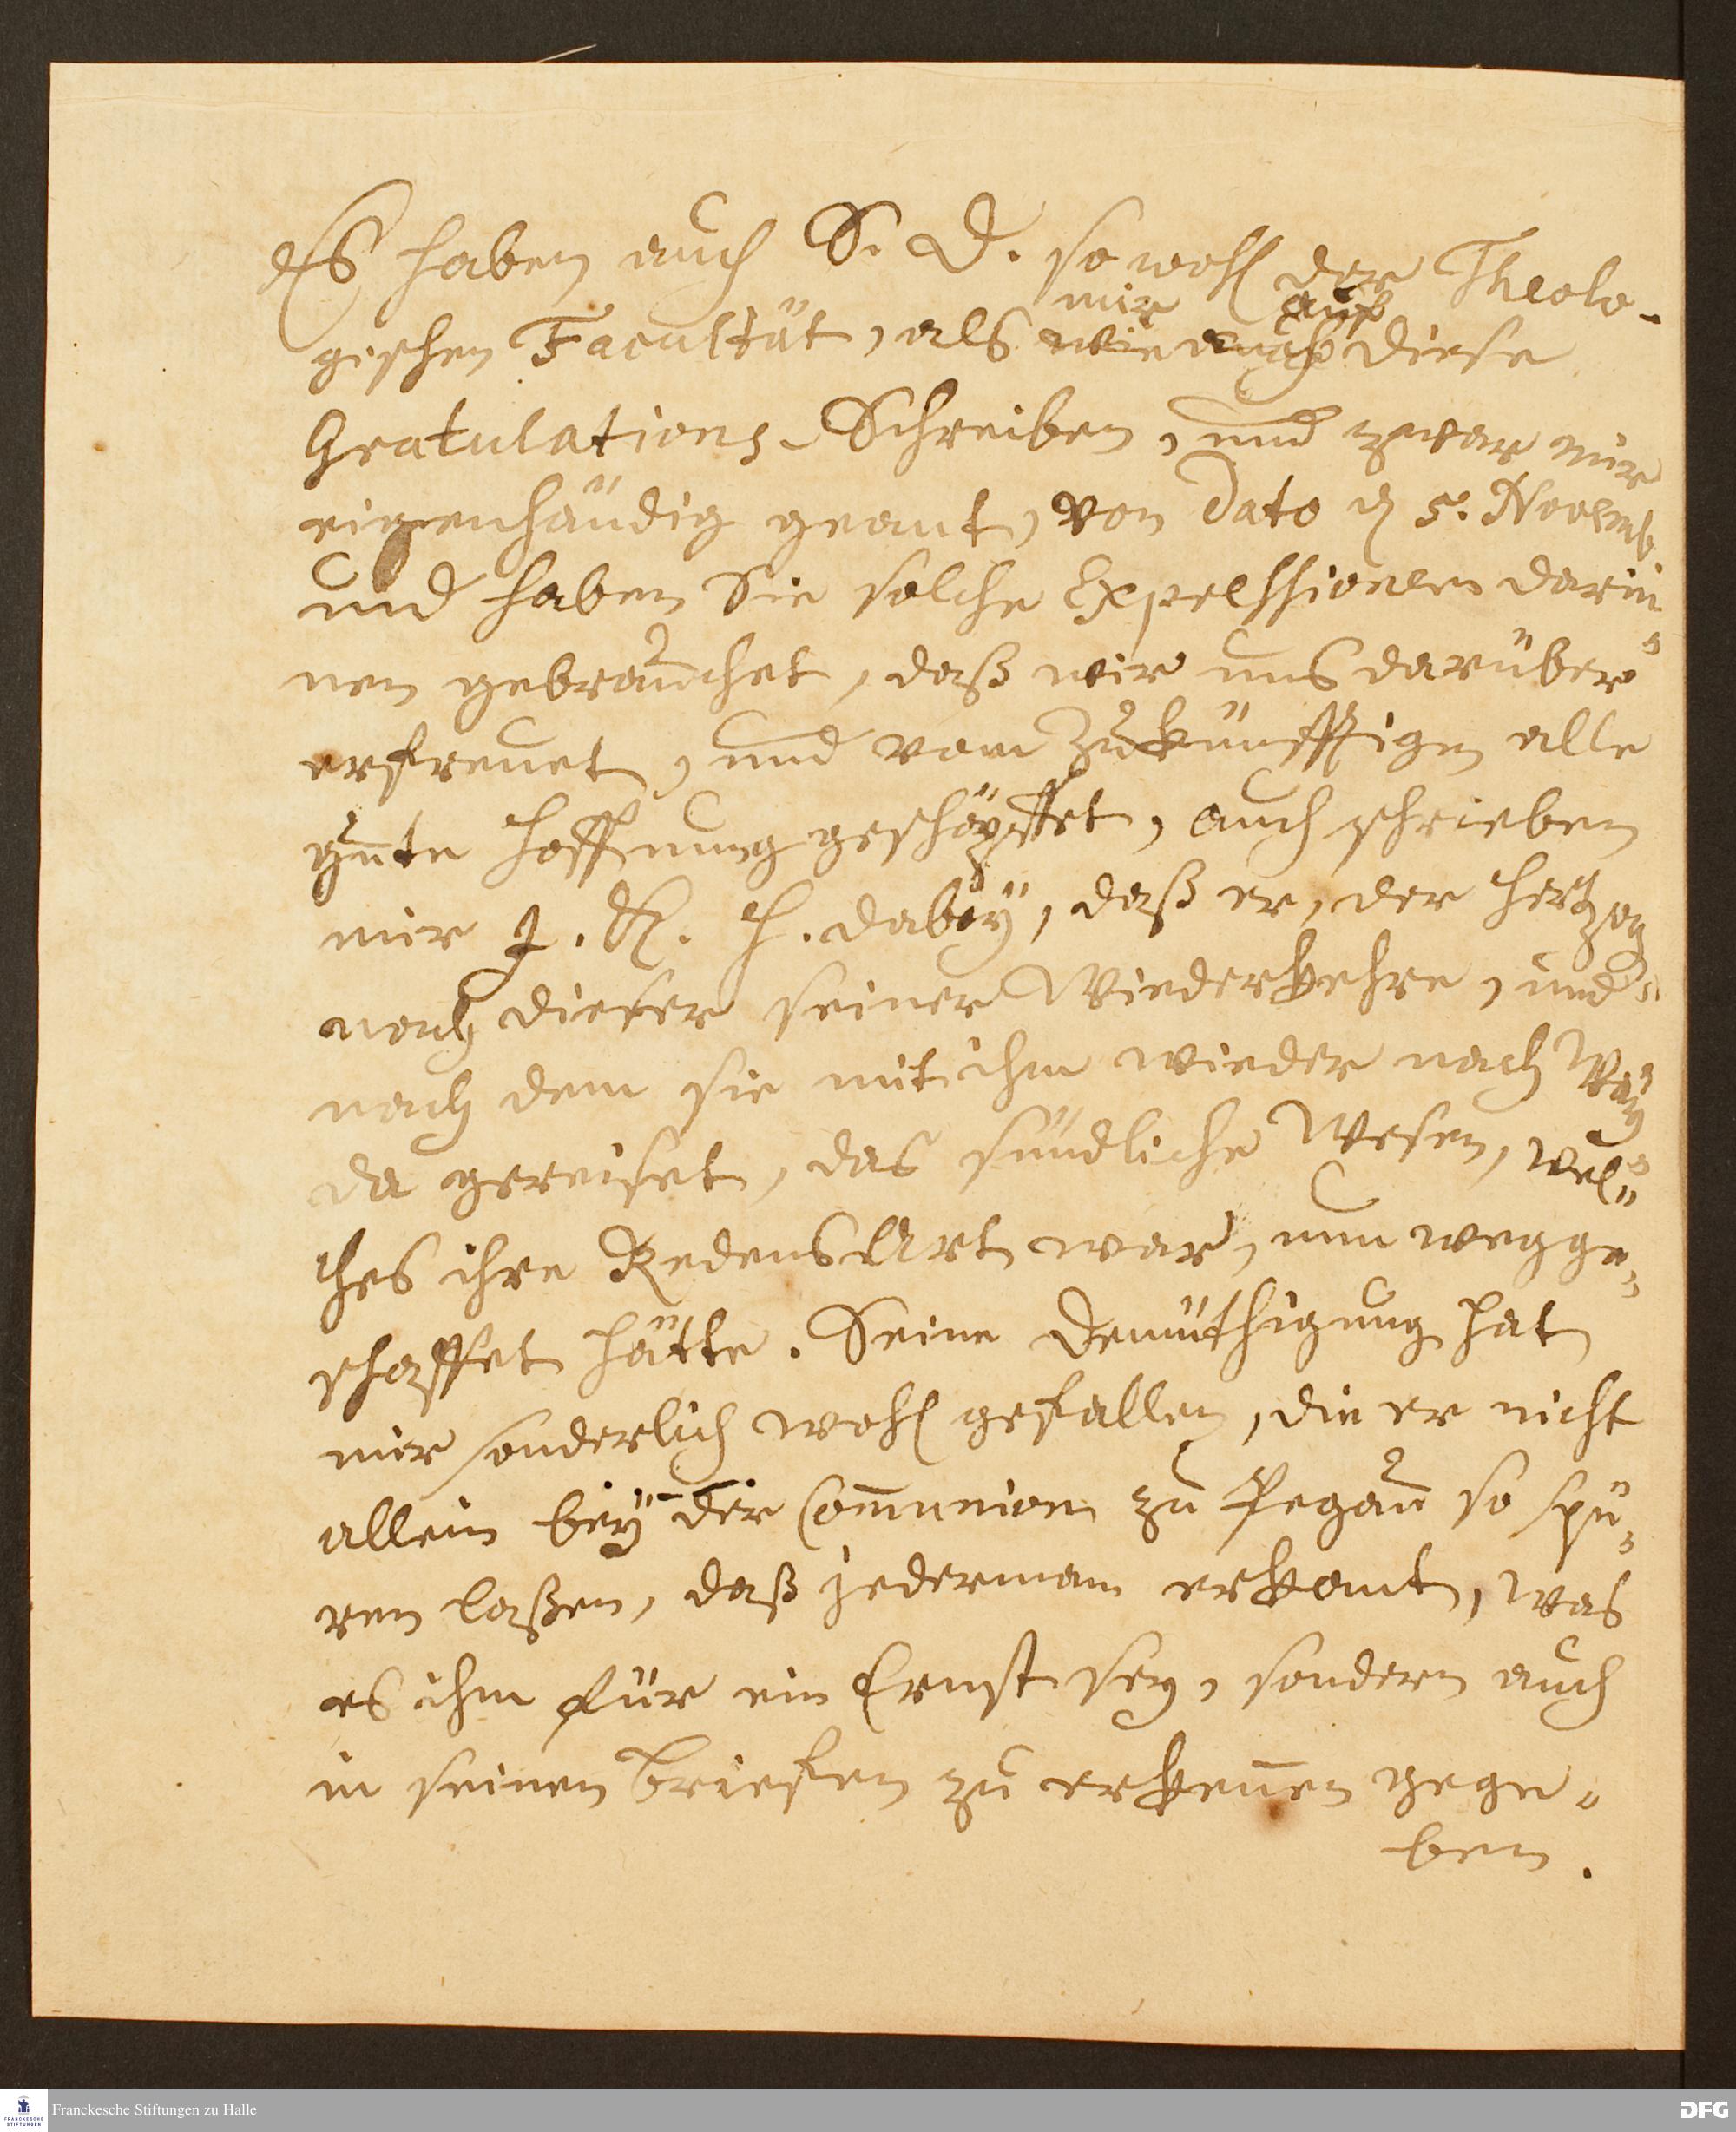 Es haben auch S. D. so wohl der Theolo-
mir auf
gischen Facultät, als wie auch diese
Gratulations-Schreiben, und zwar mir
eigenhändig geant, von dato d 5. Novemb
und haben Sie solche Expressionen darin
nen gebrauchet, daß wir uns darüber
erfreuet, und vom Zukünfftigen alle
gute Hoffnung geschöpffet, auch schrieben
mir J. K. H. dabeÿ, daß er, der Hertzog
nach dieser seiner Wiederkehre, und
nach dem sie mit ihm wieder nach Weÿ
da gereiset, das sündliche Wesen, wel"
ches ihre RedensArt war, nun wegge"
schaffet hätte. Seine Demüthigung hat
mir sonderlich wohl gefallen, die er nicht
allein beÿ der Com̄union zu Pegau so spü"
ren laßen, daß jederman erkant, was
es ihm für ein Ernst sey, sondern auch
in seinen Briefen zu erken̄en gege"
ben.
Franckesche Stiftungen zu Halle
FRANCKESCHE STIFTUNGEN
DFG